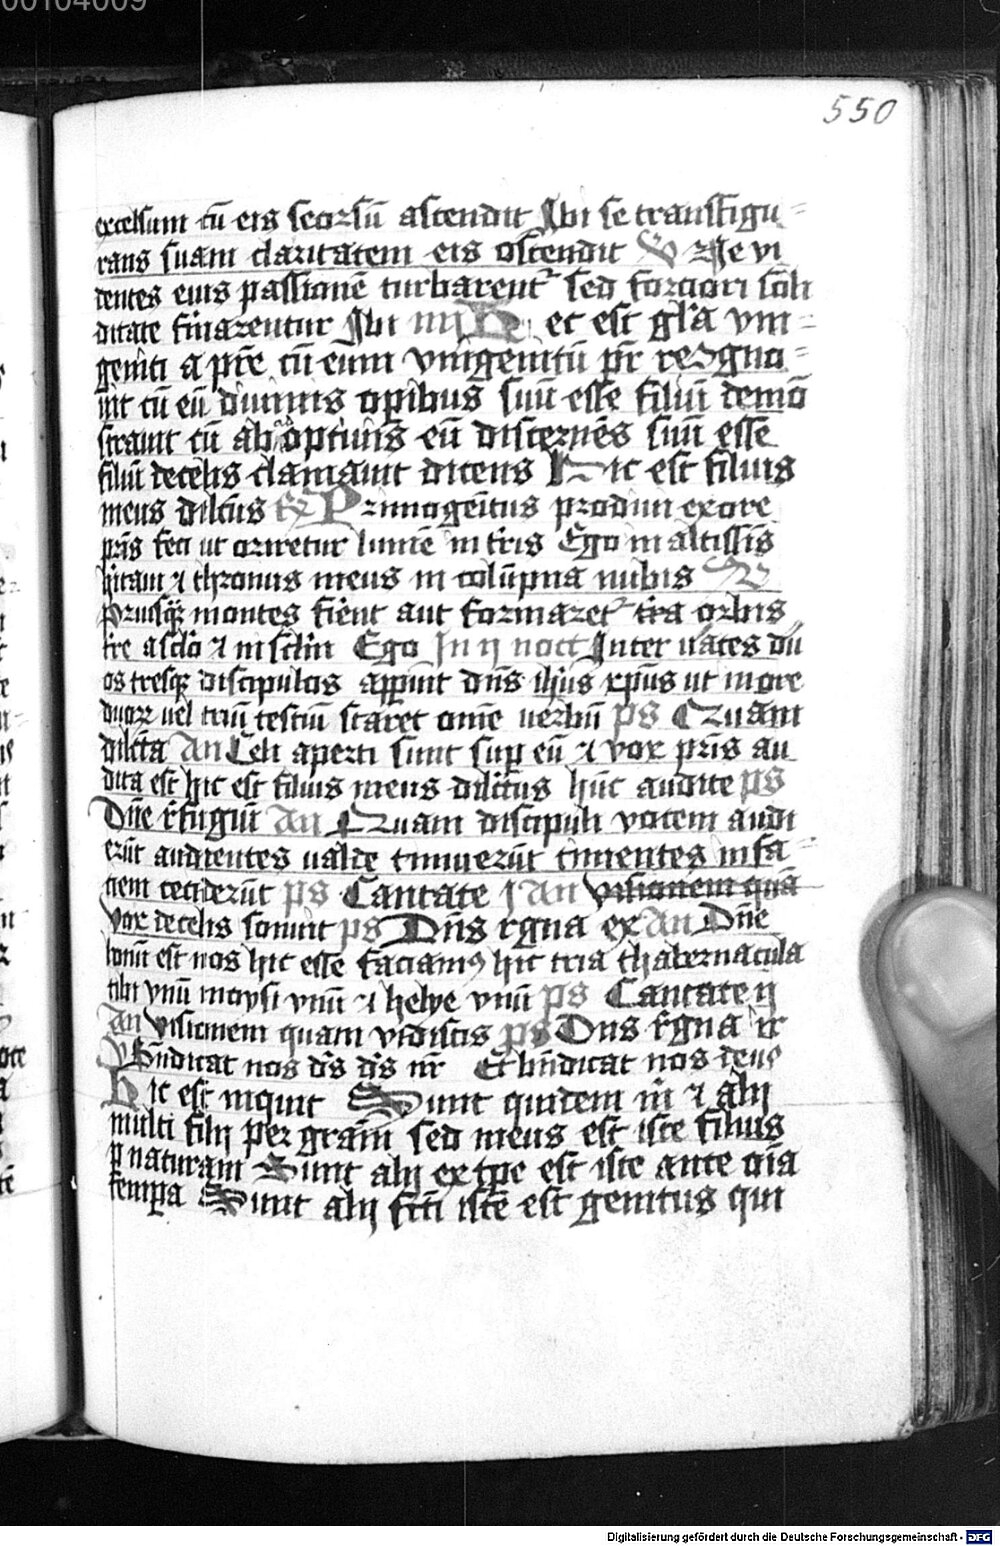 00104009
550
excelsum cū eis seorsū ascendit Ibi se transfigu=
rans suam claritatem eis ostendit V Ne vi
dentes eius passionē turbarent᷑ sed forciori soli
ditate firmarentur Ibi iiij R et est gl̄a vni=
geniti a pr̄e cū eum vnigenitū pr̄ recogno=
uit cū eū diuinis opibus suū esse filiū demō
strauit cū ab adoptiuis eū discernēs suū esse
filiū de celis clamauit dicens Hic est filius
meus dilcūs R Primogenitus prodiui ex ore
pr̄is feci ut oriretur lumē in t̄ris Ego in altissis
h̄itaui ⁊ thronus meus in colūpna nubis V
Priusqꝫ montes fierēt aut formaret᷑ t̄ra orbis
tr̄e a sclō ⁊ in sclm̄ Ego In ij noct Inter uates du
os tresqꝫ discipulos appuit dn̄s ih̄us xp̄us ut in ore
duorꝝ uel triū testiū staret om̄e uerbū ps Quam
dilcta An Celi aperti sunt sup eū ⁊ vox pr̄is au
dita est hic est filius meus dilcūs hūc audite ps
Dn̄e refugiū An Quam discipuli vocem audi
erūt audientes ualde timuerūt timentes in fa=
ciem ceciderūt ps Cantate j An visionem quā
vox de celis sonuit ps Dn̄s rgna ex An Dn̄e
bonū est nos hic esse faciamꝰ hic tria thabernacula
tibi vnū moysi vnū ⁊ helye vnū ps Cantate ij
An Visionem quam vidistis ps Dn̄s rgna ir
V Bn̄dicat nos d̄s d̄s nr̄ Et bn̄dicat nos deus
Hic est inquit Sunt quidem m̄ ⁊ alij
multi filij per gram̄ sed meus est iste filius
p naturam Sunt alij ex tpe est iste ante oīa
tempa Sunt alij fcti iste est genitus qui
Digitalisierung gefördert durch die Deutsche Forschungsgemeinschaft - DFG